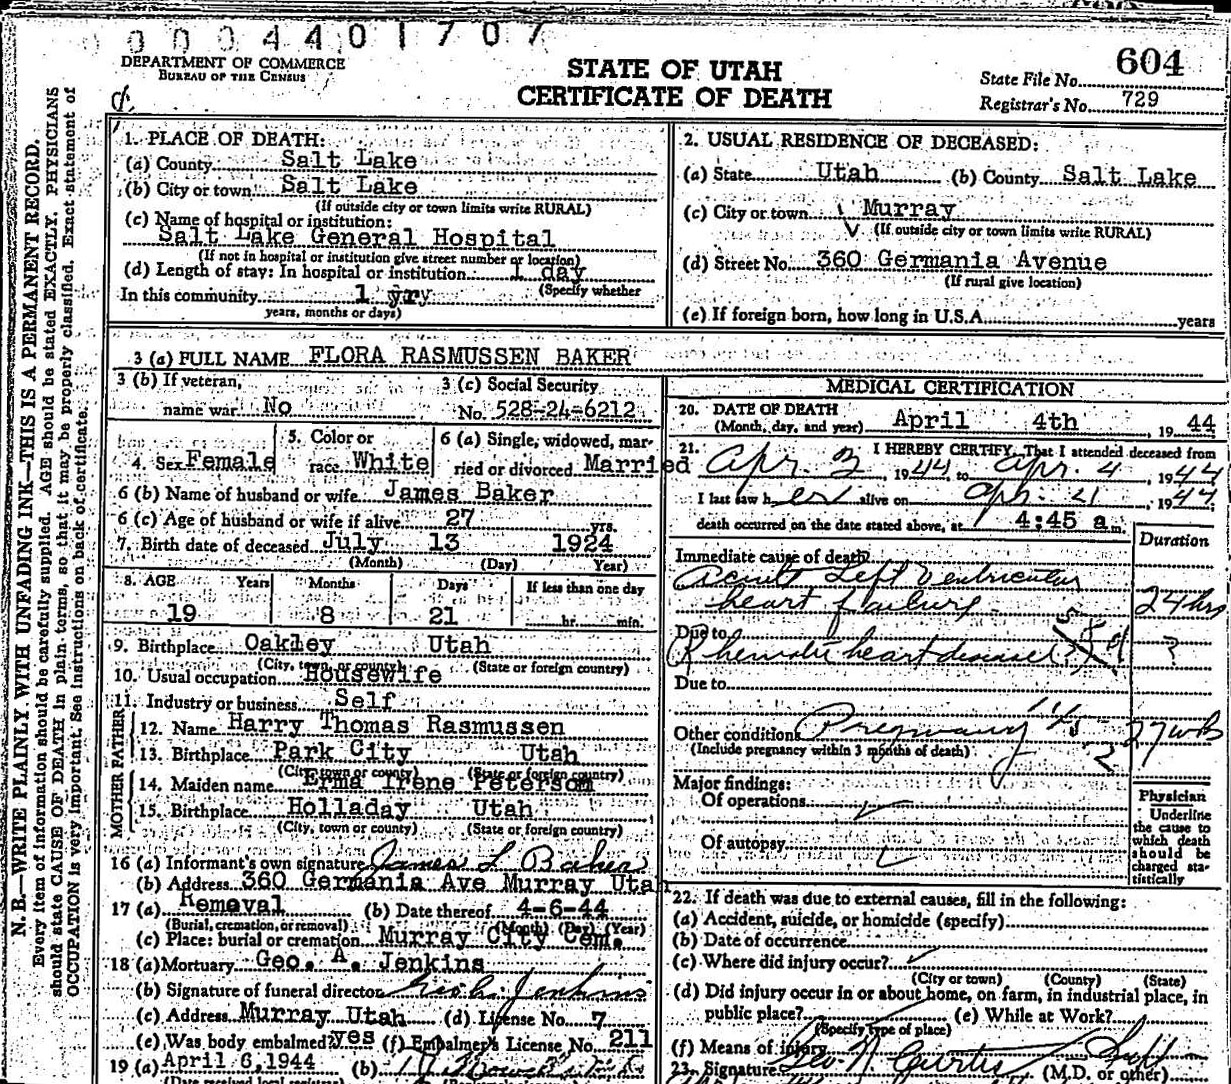 0004401707
DEPARTMENT OF COMMERCE
BUREAU OF THE CENSUS
STATE OF UTAH
CERTIFICATE OF DEATH
604
State File No.
Registrar's No. 729
N. B.—WRITE PLAINLY WITH UNFADING INK—THIS IS A PERMANENT RECORD.
Every item of information should be carefully supplied. AGE should be stated EXACTLY. PHYSICIANS
should state CAUSE OF DEATH in plain terms, so that it may be properly classified. Exact statement of
OCCUPATION is very important. See instructions on back of certificate.
1. PLACE OF DEATH:
(a) County Salt Lake
(b) City or town Salt Lake
(If outside city or town limits write RURAL)
(c) Name of hospital or institution:
Salt Lake General Hospital
(If not in hospital or institution give street number or location)
(d) Length of stay: In hospital or institution 1 day
(Specify whether
In this community 1 yr
years, months or days)
2. USUAL RESIDENCE OF DECEASED:
(a) State Utah (b) County Salt Lake
(c) City or town Murray
(If outside city or town limits write RURAL)
(d) Street No. 360 Germania Avenue
(If rural give location)
(e) If foreign born, how long in U.S.A. years
3 (a) FULL NAME FLORA RASMUSSEN BAKER
3 (b) If veteran, 3 (c) Social Security
name war No No. 528-24-6212
4. Sex Female 5. Color or race White 6 (a) Single, widowed, married or divorced Married
6 (b) Name of husband or wife James Baker
6 (c) Age of husband or wife if alive 27 yrs.
7. Birth date of deceased July 13 1924
(Month) (Day) Year)
8. AGE Years Months Days If less than one day
19 8 21 hr. min.
9. Birthplace Oakley Utah
(City, town, or county) (State or foreign country)
10. Usual occupation Housewife
11. Industry or business Self
FATHER
12. Name Harry Thomas Rasmussen
13. Birthplace Park City Utah
(City, town or county) (State or foreign country)
MOTHER
14. Maiden name Erma Irene Peterson
15. Birthplace Holladay Utah
(City, town or county) (State or foreign country)
16 (a) Informant's own signature James L Baker
(b) Address 360 Germania Ave Murray Utah
17 (a) Removal (b) Date thereof 4-6-44
(Burial, cremation, or removal) (Month) (Day) (Year)
(c) Place: burial or cremation Murray City Cem.
18 (a) Mortuary Geo. A. Jenkins
(b) Signature of funeral director Jenkins
(c) Address Murray Utah (d) License No. 7
(e) Was body embalmed? yes (f) Embalmer's License No. 211
19 (a) April 6, 1944 (b)
(Date received local registrar)
MEDICAL CERTIFICATION
20. DATE OF DEATH
(Month, day, and year) April 4th 19 44
21. I HEREBY CERTIFY, That I attended deceased from
Apr. 3, 1944, to Apr. 4, 1944
I last saw her alive on Apr. 4, 1944
death occurred on the date stated above, at 4:45 a m.
Duration
Immediate cause of death
Acute Left Ventricular
heart failure 24 hrs
Due to
Rhematic heart disease ?
Due to
Other conditions Pregnancy 27 wks
(Include pregnancy within 3 months of death)
Major findings:
Of operations
Of autopsy
Physician
Underline
the cause to
which death
should be
charged sta-
tistically
22. If death was due to external causes, fill in the following:
(a) Accident, suicide, or homicide (specify)
(b) Date of occurrence
(c) Where did injury occur?
(City or town) (County) (State)
(d) Did injury occur in or about home, on farm, in industrial place, in
public place? (e) While at Work?
(Specify type of place)
(f) Means of injury
23. Signature Curtis (M.D. or other)